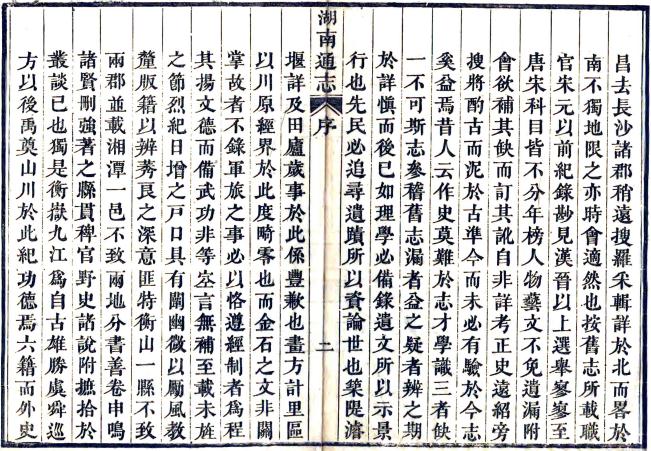 昌去長沙諸郡稍遠搜羅采輯詳於北而畧於
南不獨地限之亦時會適然也按舊志所載職
官宋元以前紀錄尠見漢晉以上選舉寥寥至
唐宋科目皆不分年榜人物藝文不免遺漏附
會欲補其缺而訂其訛自非詳考正史遠紹旁
搜將酌古而泥於古準今而未必有驗於今志
奚益焉昔人云作史莫難於志才學識三者缺
一不可斯志參稽舊志漏者益之疑者辨之期
於詳慎而後已如理學必備錄遺文所以示景
行也先民必追尋遺蹟所以資論世也築隄濬
湖南通志
序
二
堰詳及田廬歲事於此係豐歉也畫方計里區
以川原經界於此度畸零也而金石之文非關
掌故者不錄軍旅之事必以恪遵經制者爲程
其揚文德而備武功非等空言無補至載未旌
之節烈紀日增之戸口具有闡幽徵以勵風教
釐版籍以辨莠良之深意匪特衡山一縣不致
兩郡並載湘潭一邑不致兩地分書善卷申鳴
諸賢刪強著之縣貫稗官野史諸說附摭拾於
叢談已也獨是衡嶽九江爲自古雄勝虞舜巡
方以後禹奠山川於此紀功德焉六籍而外史